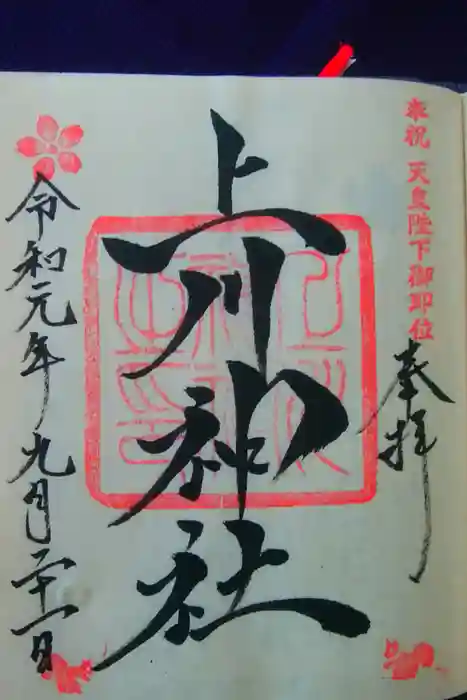 奉祝 天皇陛下御即位
奉拝
上川神社
令和元年九月二十一日